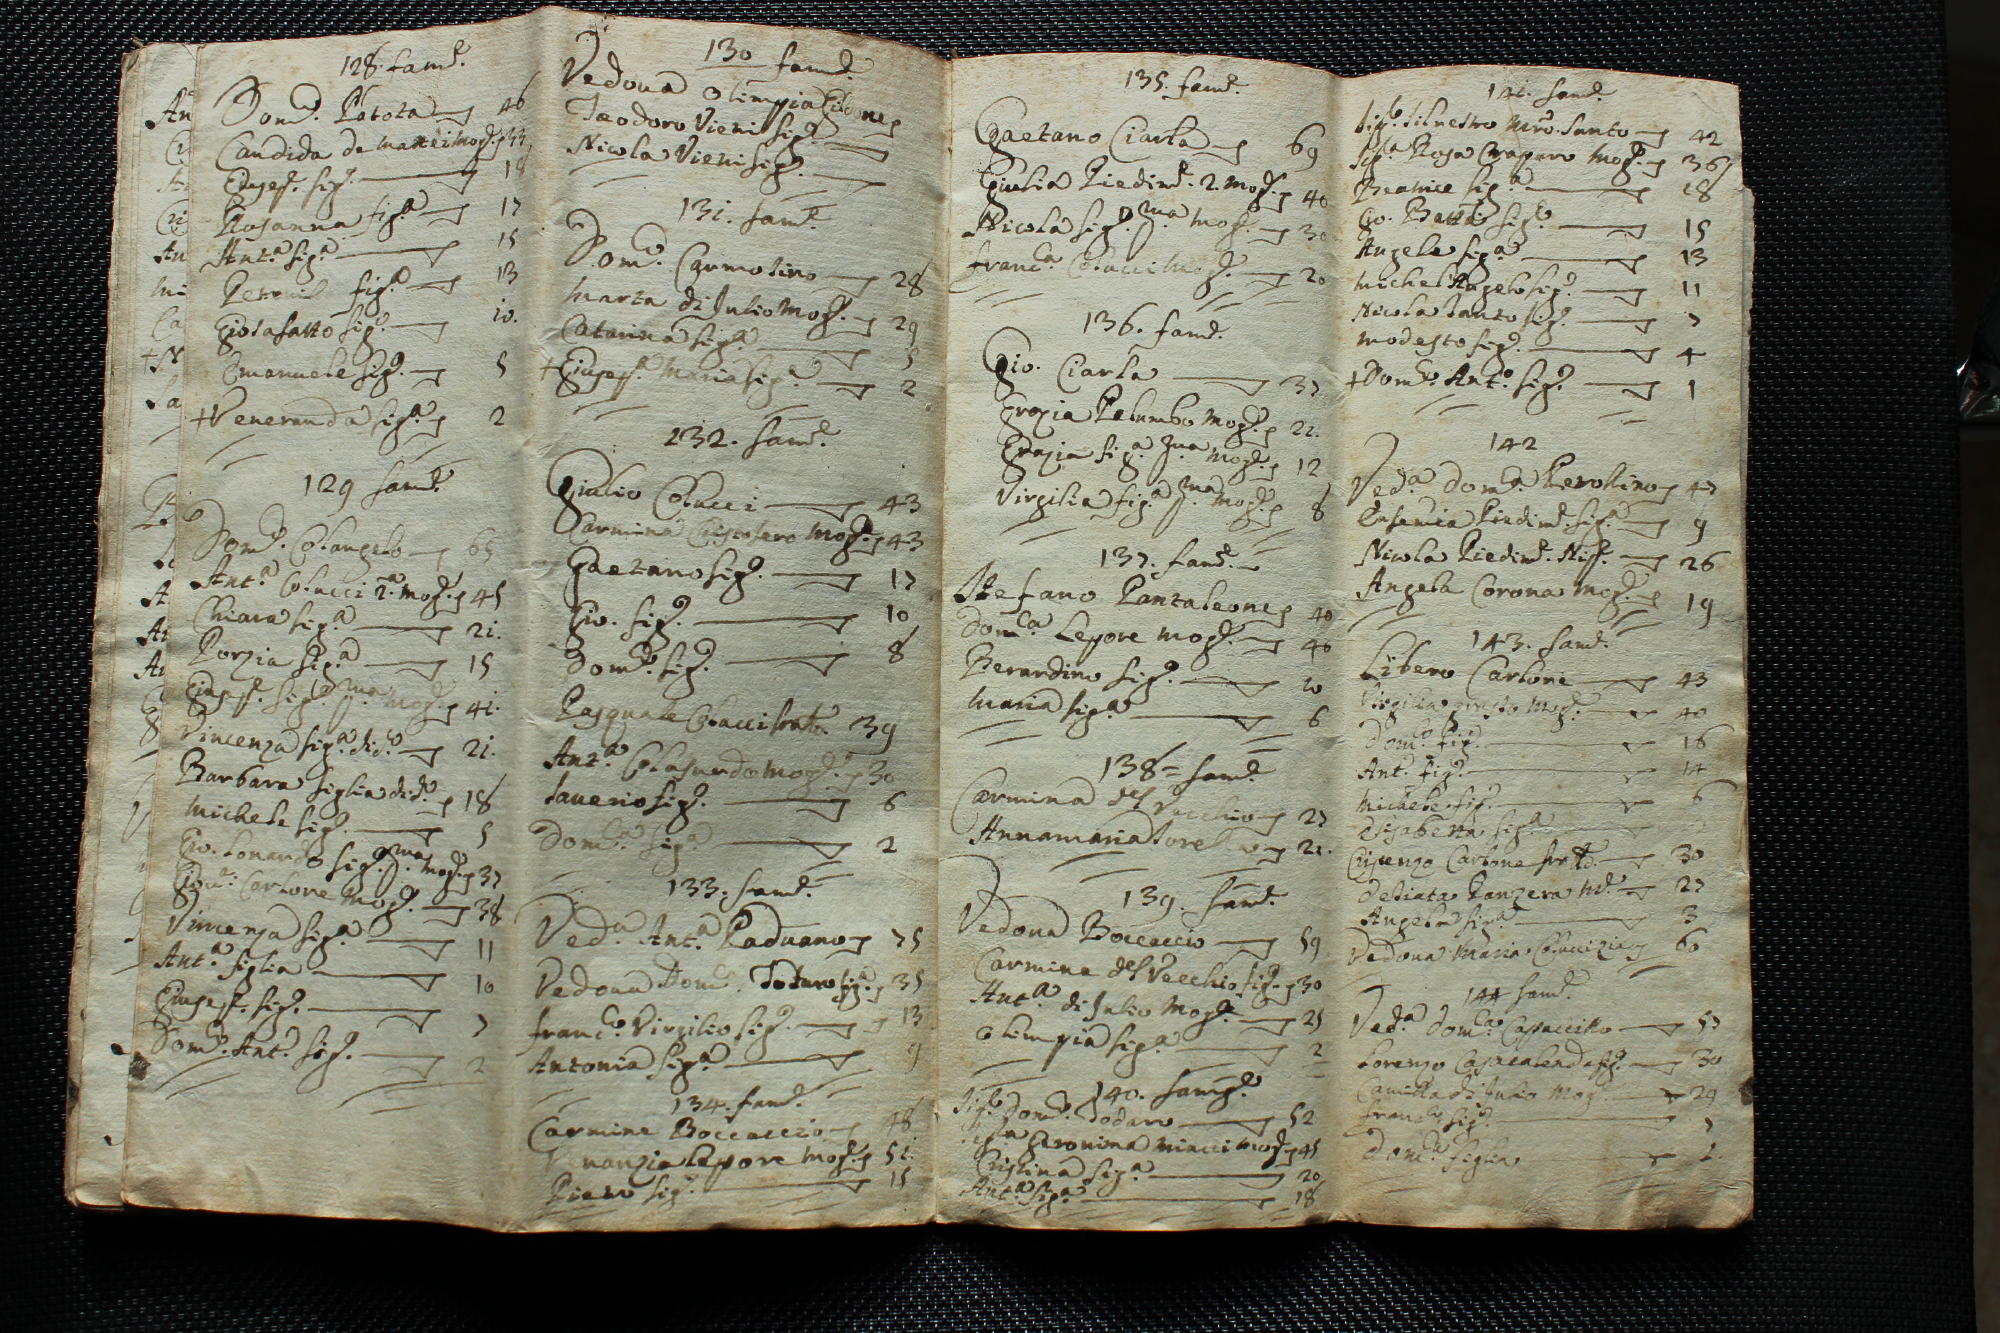 128. fam.ª
Dom.co Patota 46
Candida de Mattei mog.e 33
Giusep.e fig.o 18
Rosanna fig.a 17
Ant.a fig.a 15
fig.a 13
Giosafatto fig.o 10.
Emanuele fig.o 5
+Veneranda fig.a 2
129 fam.ª
Dom.co Colangelo 65
Ant.a Colucci 2.a mog.e 45
Chiara fig.a 21.
Porzia fig.a 15
Giusep.e fig.o p.ma mog.e 41.
Vincenza fig.a di d.o 21.
Barbara figlia di d.o 18
Michele fig.o 5
Gio. Lonardo fig.o p.ma mog.e 37
Carlone mog.e 38
Vincenza fig.a 11
Ant.a figlia 10
Giusep.e fig.o 7
Dom.co Ant.o fig.o 2
130 fam.ª
Vedova Olimpia
Teodoro Vieni fig.o
Nicola Vieni fig.o
131. fam.ª
Dom.co Carmosino 28
Marta di Iulio mog.e 29
Catarina fig.a 5
+Giusep.a Maria fig.a 2
132. fam.ª
Giulio Colucci 43
Carmina mog.e 43
Gaetano fig.o 17
Gio. fig.o 10
Dom.co fig.o 8
Pasquale Colucci frat.o 39
Ant.a Colasurdo mog.e 30
Saverio fig.o 6
Dom.ca fig.a 2
133. fam.ª
Ved.a Ant.a Paduano 75
Vedova Dom.ca Totaro fig.a 35
Franc.o Virgilio fig.o 13
Antonia fig.a 9
134. fam.ª
Carmine Boccaccio 48
Venanzia Lepore mog.e 51.
Piero fig.o 15
135. fam.ª
Gaetano Ciarla 69
Giulia Piedim.e 2. mog.e 40
Nicola fig.o p.ma mog.e 30
Franc.a Colucci mog.e 20
136. fam.ª
Gio. Ciarla 37
Grazia Pelumbo mog.e 21.
Grazia fig.a p.ma mog.e 12
Virgilia fig.a p.ma mog.e 8
137. fam.ª
Stefano Pantaleone 40
Dom.ca Lepore mog.e 40
Berardino fig.o 10
Maria fig.a 6
138 fam.ª
Carmina del Vecchio 27
Annamaria 21.
139. fam.ª
Vedova Boccaccio 59
Carmine del Vecchio fig.o 30
Ant.a di Iulio mog.e 25
Olimpia fig.a 2
140. famig.a
Sig.r Dom.co Todaro 52
Sig.a Geronima Miacci mog.e 45
Cristina fig.a 20
Ant.a fig.a 18
141. fam.ª
Sig.r Silvestro Mro. Santo 42
Sig.a Rosa Crapara mog.e 36
Beatrice fig.a 18
Gio. Batta fig.o 15
Angela fig.a 13
Michel'Angelo fig.o 11
Nicola Santo fig.o 7
Modesto fig.o 4
+Dom.co Ant.o fig.o 1
142
Ved.a Dom.ca Perollino 47
Eufemia Piedim.e fig.a 9
Nicola Piedim.e Nip.e 26
Angela Corona mog.e 19
143. fam.ª
Libero Carlone 43
Virgilia mog.e 40
Dom.co fig.o 16
Ant.o fig.o 14
Michele fig.o 6
Elisabetta fig.a
Carlone frat.o 30
Panzera m.e 27
Angela fig.a 3
Vedova Maria Colucci zia 60
144 fam.ª
Ved.a Dom.ca Capuccillo 57
Lorenzo Casacalenda fig.o 30
Camilla di Iulio mog.e 29
Franc.o fig.o 7
Dom.ca figlia 1